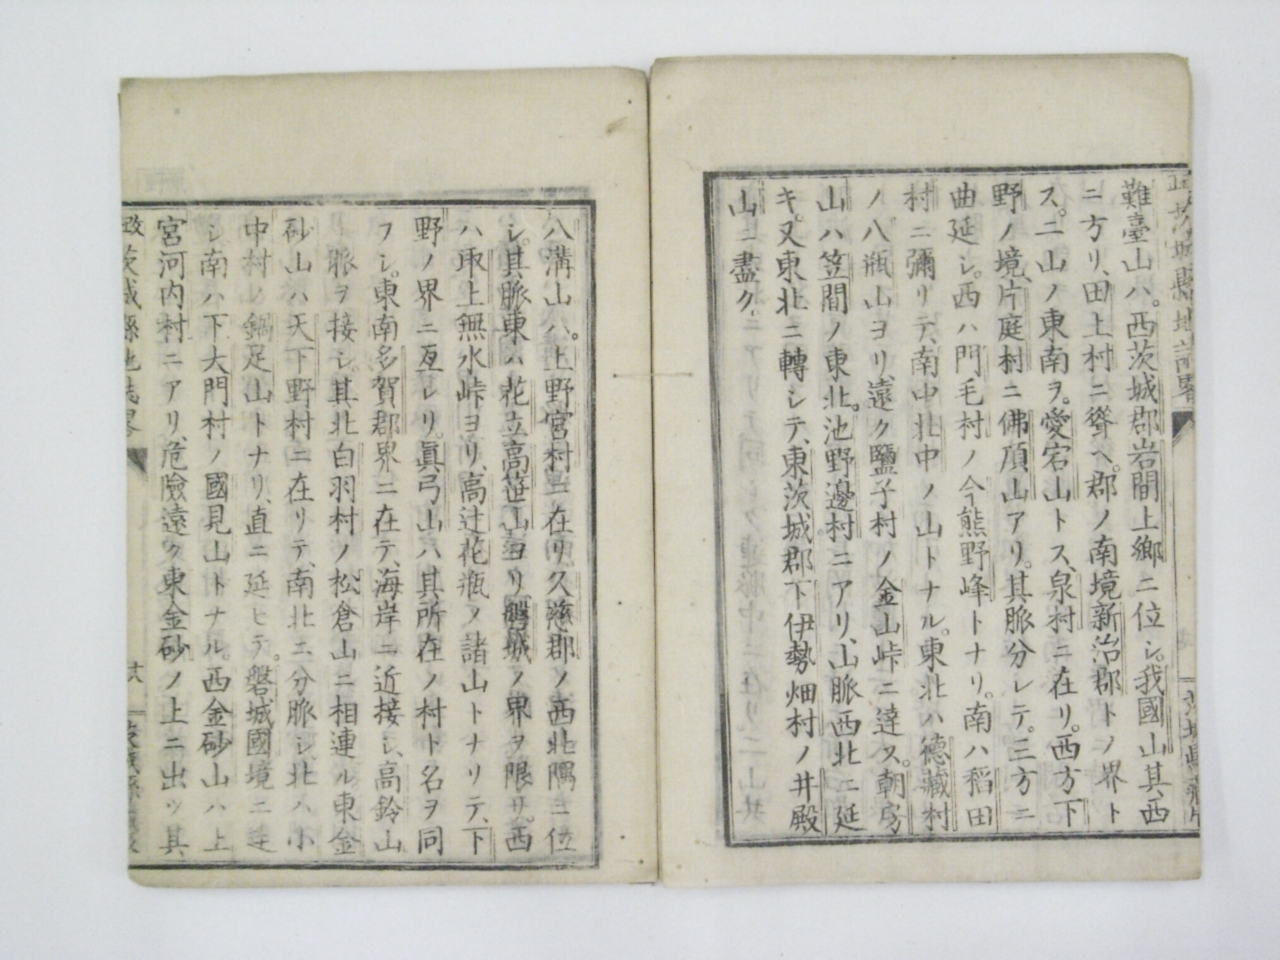 難臺山ハ。西茨城郡岩間上鄉ニ位シ。我國山其西
ニ方リ、田上村ニ聳ヘ。郡ノ南境新治郡トノ界ト
ス。二山ノ東南ヲ。愛宕山トス、泉村ニ在リ。西方下
野ノ境、片庭村ニ佛頂山アリ。其脈分レテ。三方ニ
曲延シ。西ハ門毛村ノ今熊野峰トナリ。南ハ稻田
村ニ彌リテ、南中北中ノ山トナル。東北ハ德藏村
ノ八瓶山ヨリ、遠ク鹽子村ノ金山峠ニ達ス。朝房
山ハ笠間ノ東北。池野邊村ニアリ、山脈西北ニ延
キ。又東北ニ轉シテ、東茨城郡下伊勢畑村ノ井殿
山ニ盡ク、
八溝山ハ。上野宮村ニ在リ久慈郡ノ西北隅ニ位
シ。其脈東ハ花立高笹山ヨリ磐城ノ界ヲ限リ。西
ハ取上無水峠ヨリ、高辻花瓶ノ諸山トナリテ、下
野ノ界ニ亙レリ。眞弓山ハ其所在ノ村ト名ヲ同
フシ。東南多賀郡界ニ在テ、海岸ニ近接シ、高鈴山
ノ脈ヲ接シ。其北白羽村ノ松倉山ニ相連ル東金
砂山ハ天下野村ニ在リテ、南北ニ分脈シ、北ハ小
中村ノ鍋足山トナリ、直ニ延ヒテ。磐城國境ニ連
シ南ハ下大門村ノ國見山トナル。西金砂山ハ上
宮河内村ニアリ、危險遠ク東金砂ノ上ニ出ツ其
改茨城縣地誌畧
廿六